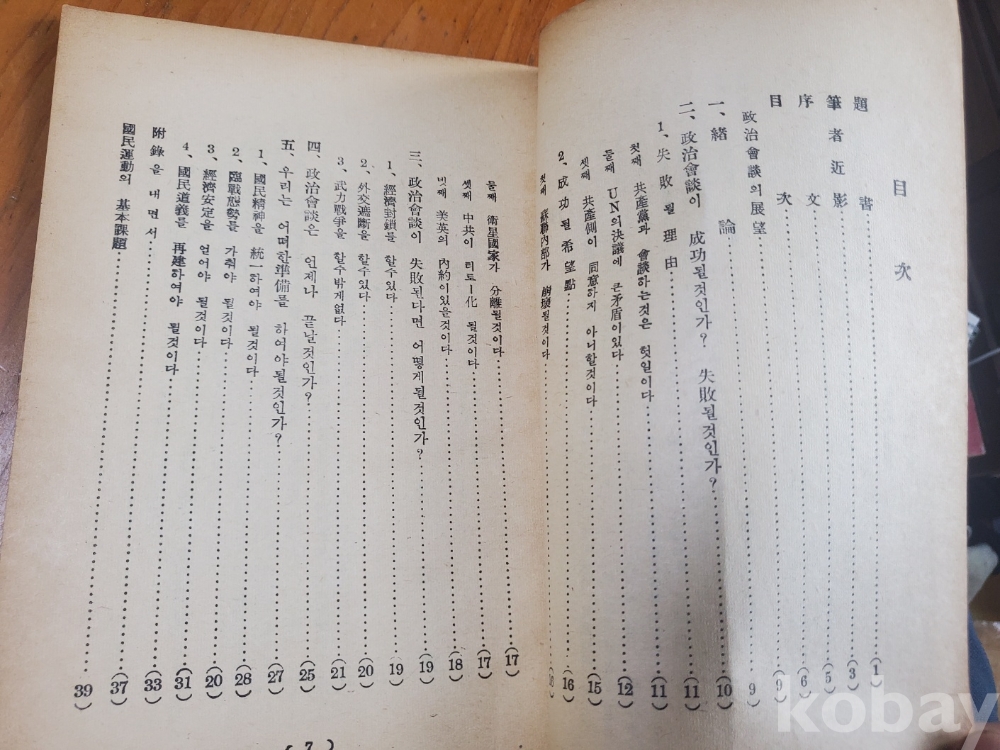 目次
題書 (1)
筆者近影 (3)
序文 (5)
目次 (6)
政治會談의 展望 (9)
一、緖論 9
二、政治會談이 成功될것인가? 失敗될것인가? (10)
1、失敗될理由 (11)
첫째 共產黨과 會談하는것은 헛일이다 (11)
둘째 UN의決議에 큰矛盾이있다 (12)
셋째 共產側이 同意하지 아니할것이다 (15)
2、成功될希望點 (16)
첫째 蘇聯內部가 崩壞될것이다
둘째 衛星國家가 分離될것이다 (17)
셋째 中共이 티토ー化 될것이다 (17)
넷째 美英의 內約이있을것이다 (18)
三、政治會談이 失敗된다면 어떻게될것인가? (19)
1、經濟封鎖를 할수있다 (19)
2、外交遮斷을 할수있다 (20)
3、武力戰爭을 할수밖게없다 (21)
四、政治會談은 언제나 끝날것인가? (25)
五、우리는 어떠한準備를 하여야될것인가? (27)
1、國民精神을 統一하여야 될것이다 (28)
2、臨戰態勢를 가춰야 될것이다 (20)
3、經濟安定을 얻어야 될것이다 (31)
4、國民道義를 再建하여야 될것이다 (33)
附錄을 내면서 (37)
國民運動의 基本課題 39
(7)
kobay